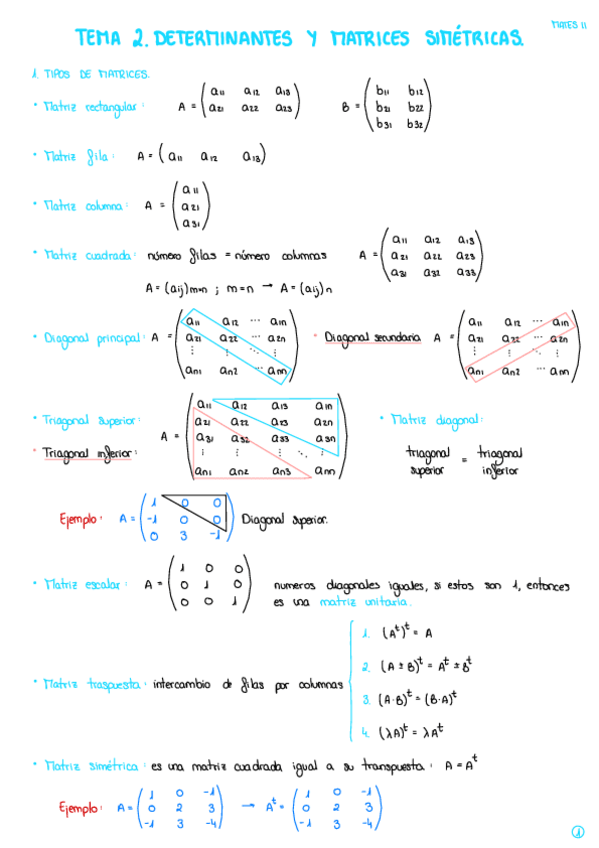 MATES II
TEMA 2. DETERMINANTES Y MATRICES SIMÉTRICAS.
1. TIPOS DE MATRICES.
• Matriz rectangular: A = (a11 a12 a13 / a21 a22 a23) B = (b11 b12 / b21 b22 / b31 b32)
• Matriz fila: A = (a11 a12 a13)
• Matriz columna: A = (a11 / a21 / a31)
• Matriz cuadrada: número filas = número columnas A = (a11 a12 a13 / a21 a22 a23 / a31 a32 a33)
A = (aij)m×n ; m=n → A = (aij)n
• Diagonal principal: A = (a11 a12 ... a1n / a21 a22 ... a2n / ⋮ ⋮ ⋱ ⋮ / an1 an2 ... ann) • Diagonal secundaria A = (a11 a12 ... a1n / a21 a22 ... a2n / ⋮ ⋮ ⋱ ⋮ / an1 an2 ... ann)
• Triagonal superior: • Triagonal inferior: A = (a11 a12 a13 a1n / a21 a22 a23 a2n / a31 a32 a33 a3n / ⋮ ⋮ ⋮ ⋱ ⋮ / an1 an2 an3 ann)
• Matriz diagonal:
triagonal superior = triagonal inferior
Ejemplo: A = (1 0 0 / -1 0 0 / 0 3 -1) Diagonal superior.
• Matriz escalar: A = (1 0 0 / 0 1 0 / 0 0 1) numeros diagonales iguales, si estos son 1, entonces
es una matriz unitaria.
• Matriz traspuesta: intercambio de filas por columnas
1. (A^t)^t = A
2. (A ± B)^t = A^t ± B^t
3. (A·B)^t = (B·A)^t
4. (λA)^t = λA^t
• Matriz simétrica: es una matriz cuadrada igual a su transpuesta: A = A^t
Ejemplo: A = (1 0 -1 / 0 2 3 / -1 3 -4) → A^t = (1 0 -1 / 0 2 3 / -1 3 -4)
1